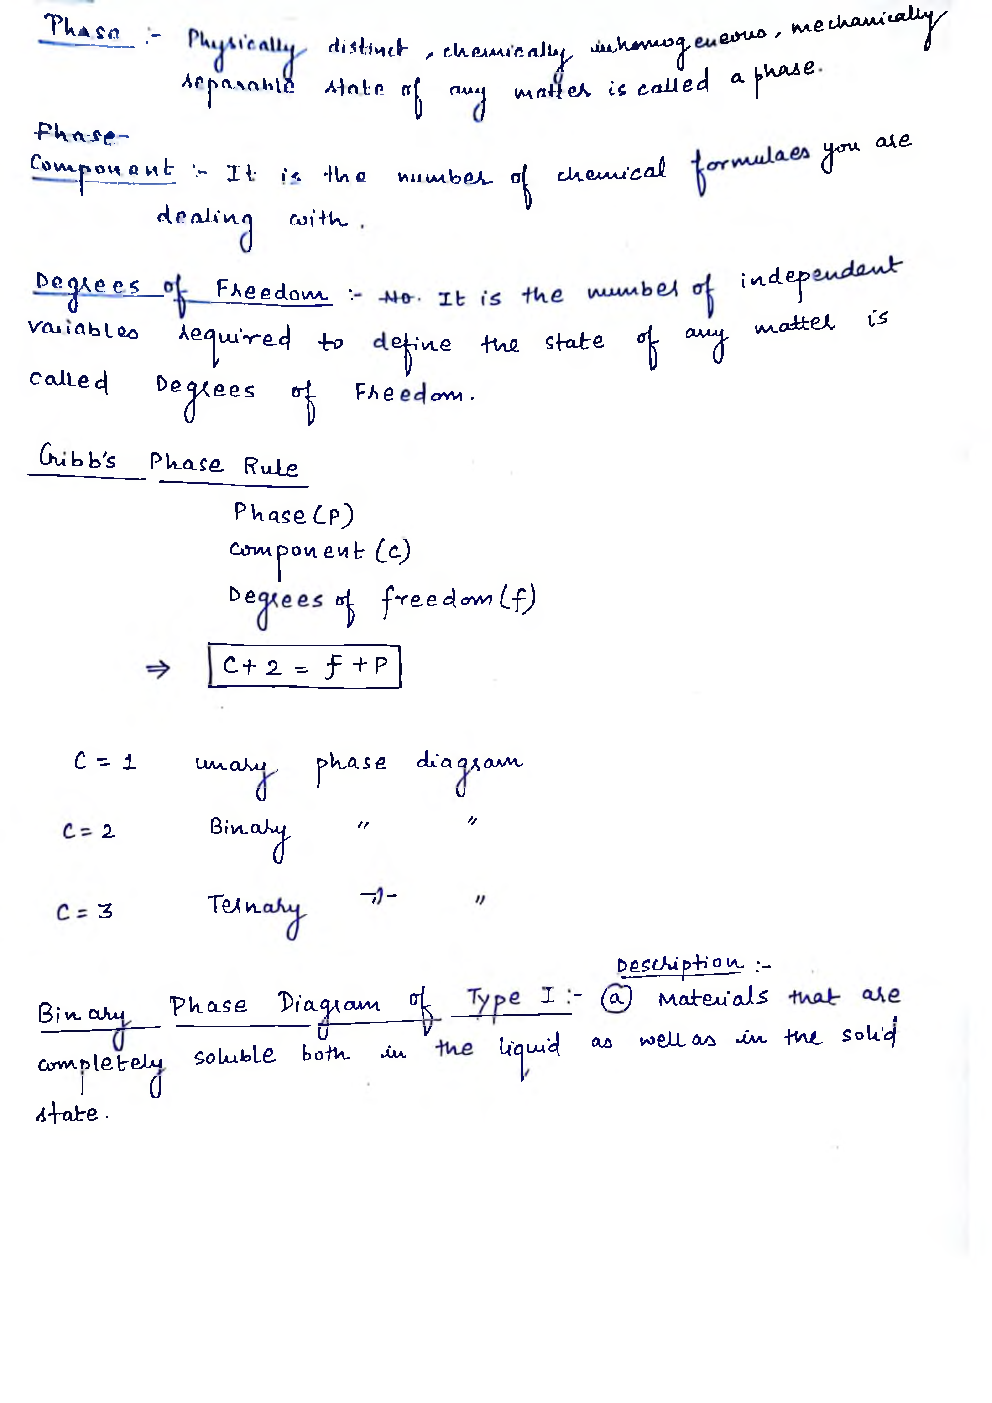 Phase :- Physically distinct, chemically inhomogeneous, mechanically
separable state of any matter is called a phase.
Phase-
Component :- It is the number of chemical formulaes you are
dealing with.
Degrees of Freedom :- No. It is the number of independent
variables required to define the state of any matter is
called Degrees of Freedom.
Gibb's Phase Rule
Phase (P)
Component (C)
Degrees of freedom (f)
⇒ C + 2 = f + P
C = 1 unary phase diagram
C = 2 Binary " "
C = 3 Ternary -"- "
Description :-
Binary Phase Diagram of Type I :- (a) Materials that are
completely soluble both in the liquid as well as in the solid
state.